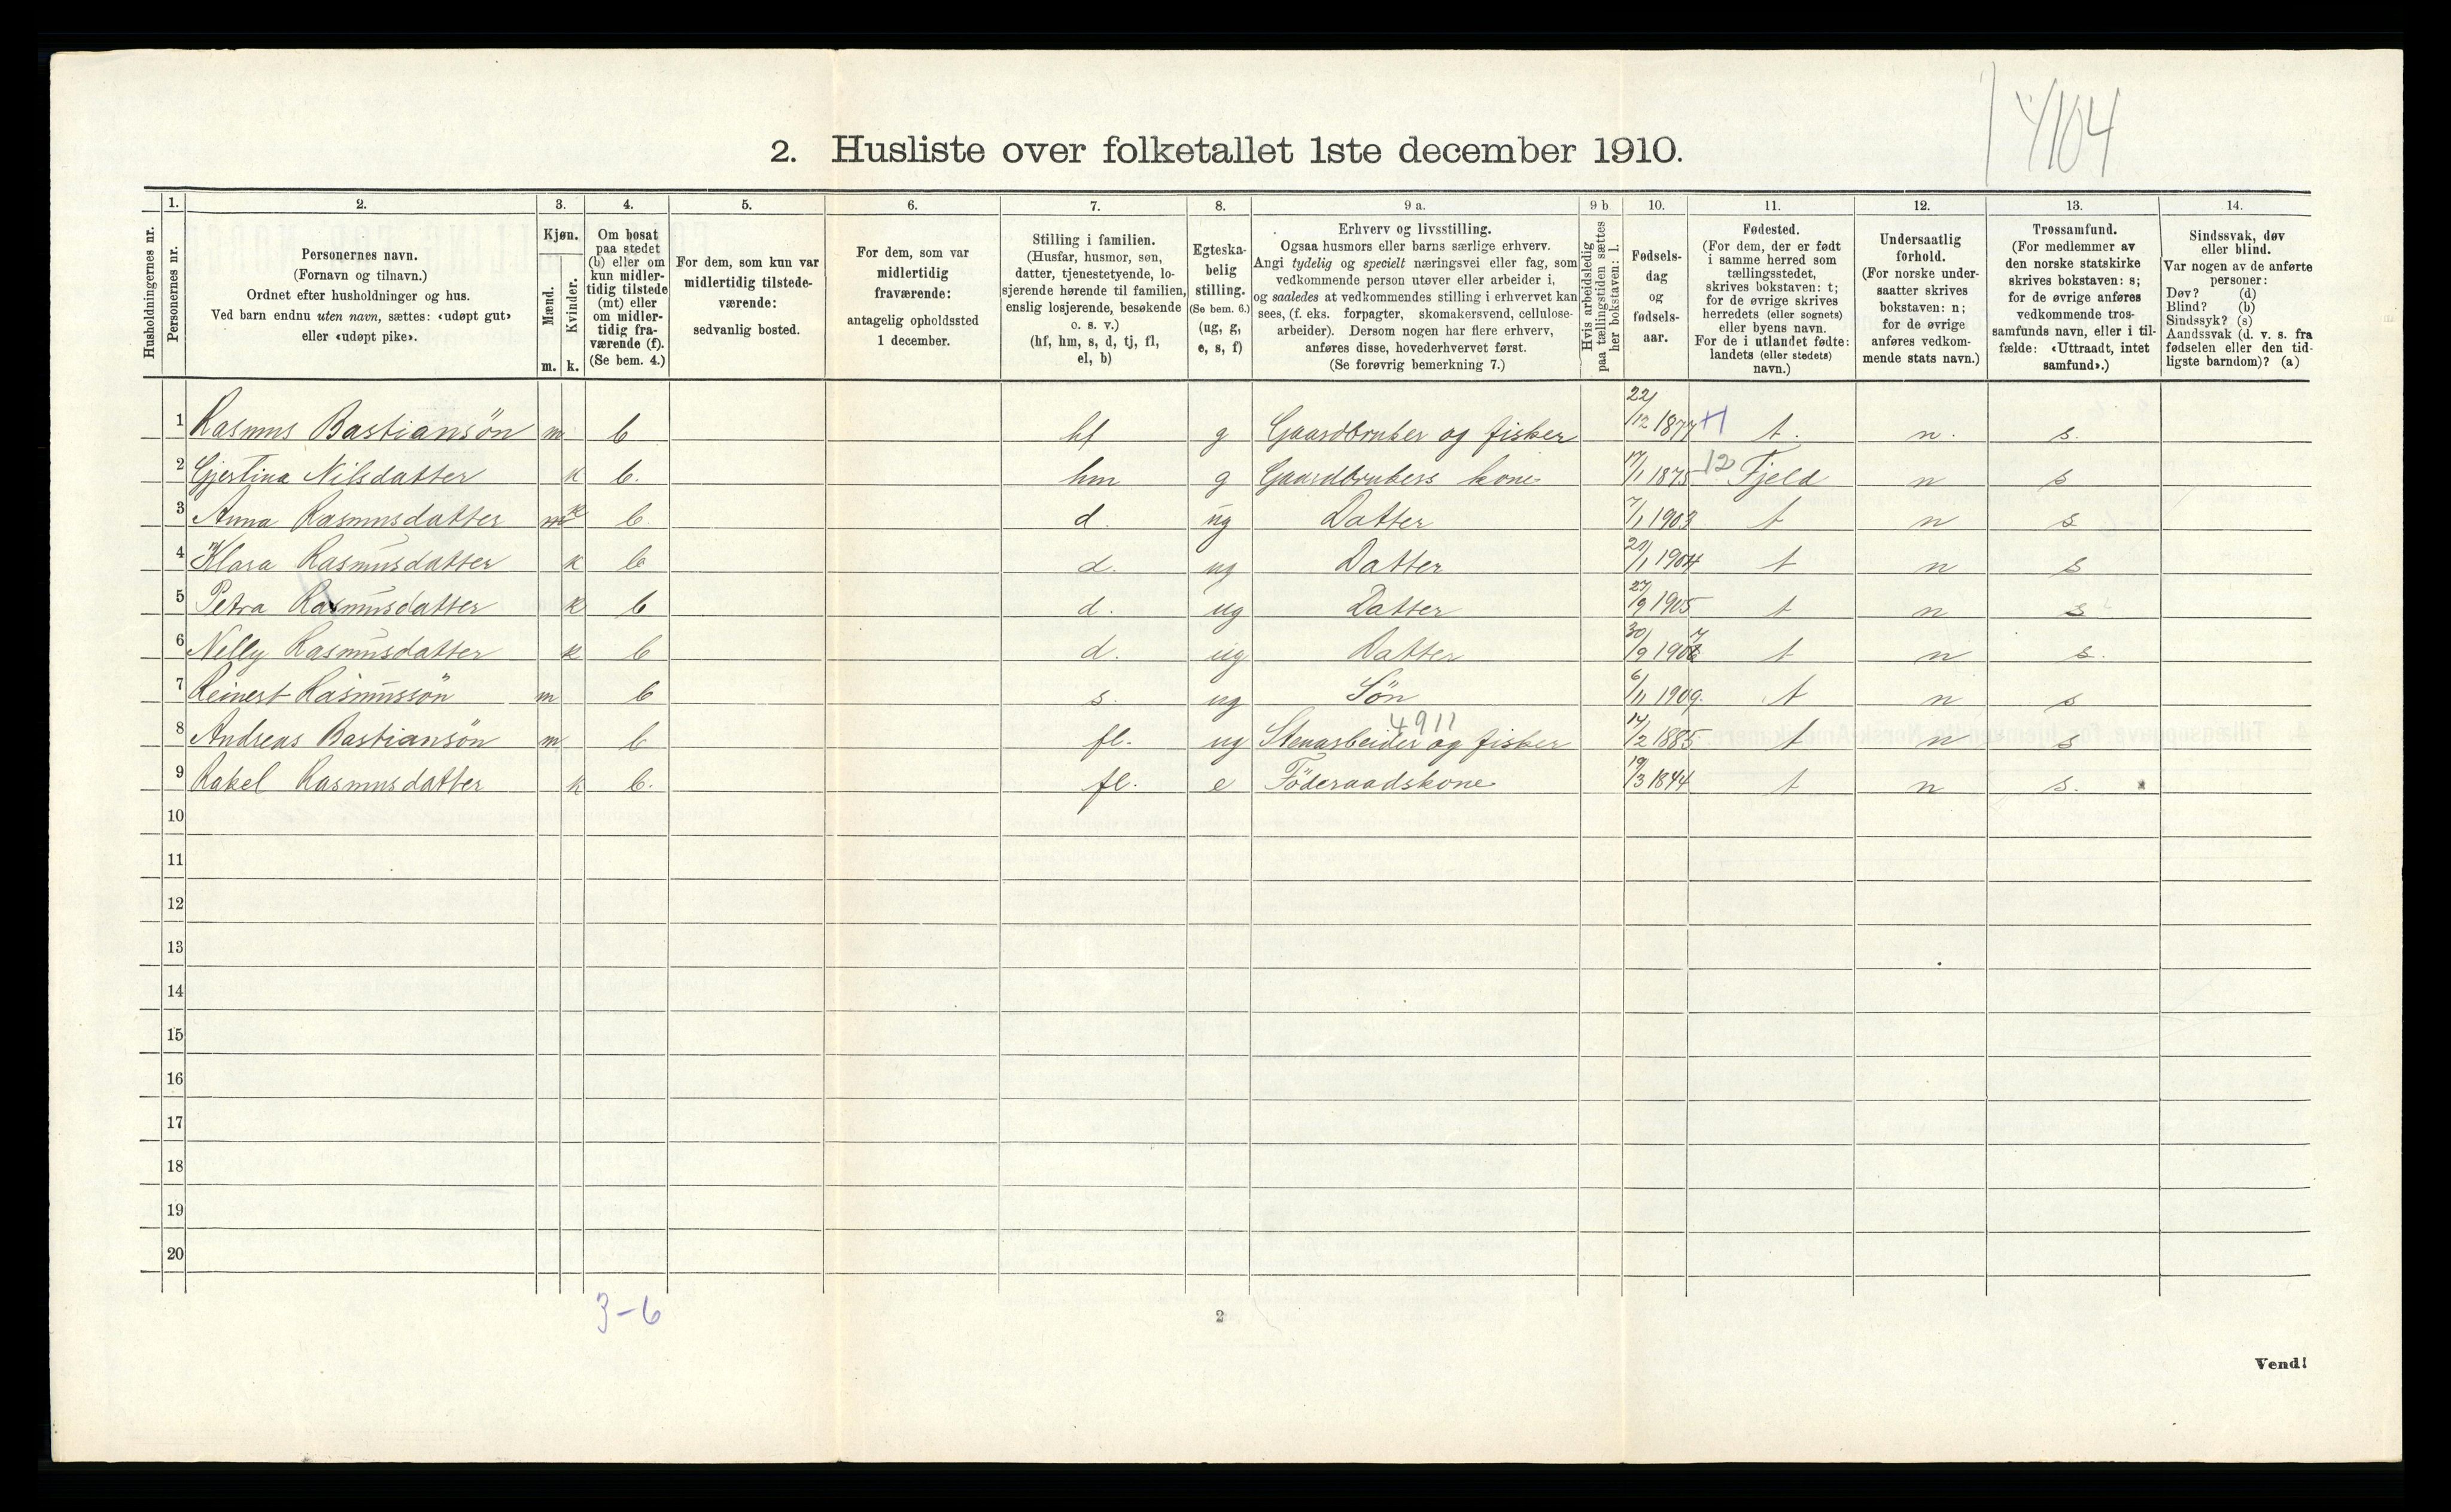 4104
2. Husliste over folketallet 1ste december 1910.
Husholdningernes nr.
1.
Personernes nr.
2.
Personernes navn.
(Fornavn og tilnavn.)
Ordnet efter husholdninger og hus.
Ved barn endnu uten navn, sættes: «udøpt gut»
eller «udøpt pike».
3.
Kjøn.
Mænd.
Kvinder.
m. k.
4.
Om bosat
paa stedet
(b) eller om
kun midler-
tidig tilstede
(mt) eller
om midler-
tidig fra-
værende (f).
(Se bem. 4.)
5.
For dem, som kun var
midlertidig tilstede-
værende:
sedvanlig bosted.
6.
For dem, som var
midlertidig
fraværende:
antagelig opholdssted
1 december.
7.
Stilling i familien.
(Husfar, husmor, søn,
datter, tjenestetyende, lo-
sjerende hørende til familien,
enslig losjerende, besøkende
o. s. v.)
(hf, hm, s, d, tj, fl,
el, b)
8.
Egteska-
belig
stilling.
(Se bem. 6.)
(ug, g,
e, s, f)
9 a.
Erhverv og livsstilling.
Ogsaa husmors eller barns særlige erhverv.
Angi tydelig og specielt næringsvei eller fag, som
vedkommende person utøver eller arbeider i,
og saaledes at vedkommendes stilling i erhvervet kan
sees, (f. eks. forpagter, skomakersvend, cellulose-
arbeider). Dersom nogen har flere erhverv,
anføres disse, hovederhvervet først.
(Se forøvrig bemerkning 7.)
9 b
Hvis arbeidsledig
paa tællingstiden sættes
her bokstaven: l.
10.
Fødsels-
dag
og
fødsels-
aar.
11.
Fødested.
(For dem, der er født
i samme herred som
tællingsstedet,
skrives bokstaven: t;
for de øvrige skrives
herredets (eller sognets)
eller byens navn.
For de i utlandet fødte:
landets (eller stedets)
navn.)
12.
Undersaatlig
forhold.
(For norske under-
saatter skrives
bokstaven: n;
for de øvrige
anføres vedkom-
mende stats navn.)
13.
Trossamfund.
(For medlemmer av
den norske statskirke
skrives bokstaven: s;
for de øvrige anføres
vedkommende tros-
samfunds navn, eller i til-
fælde: «Uttraadt, intet
samfund».)
14.
Sindssvak, døv
eller blind.
Var nogen av de anførte
personer:
Døv? (d)
Blind? (b)
Sindssyk? (s)
Aandssvak (d. v. s. fra
fødselen eller den tid-
ligste barndom)? (a)
1 Rasmus Bastiansön m b hf g Gaardbruker og fisker 22/12 1877 t. n. s.
2 Gjertina Nilsdatter k b. hm g Gaardbrukers kone 17/1 1875 12 Fjeld n s
3 Anna Rasmusdatter k b. d. ug Datter 7/1 1903 t n s
4 Klara Rasmusdatter k b d. ug Datter 1904 t n s
5 Petra Rasmusdatter k b d. ug Datter 27/9 1905 t n s
6 Nelly Rasmusdatter k b d. ug Datter 30/9 1907 t n s.
7 Reinert Rasmussön m b s. ug Sön 6/11 1909. t n s
4911
8 Andreas Bastiansön m b fl. ug Stenarbeider og fisker 14/2 1885 t n s
9 Rakel Rasmusdatter k b. fl. e Föderaadskone 19/3 1844 t n s.
10
11
12
13
14
15
16
17
18
19
20
3-6
2
Vend!